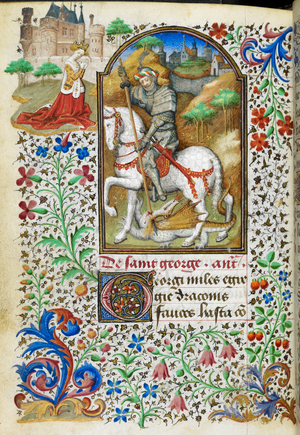 De saint george. ant.
Georgi miles egre
gie draconis
fauces hasta co